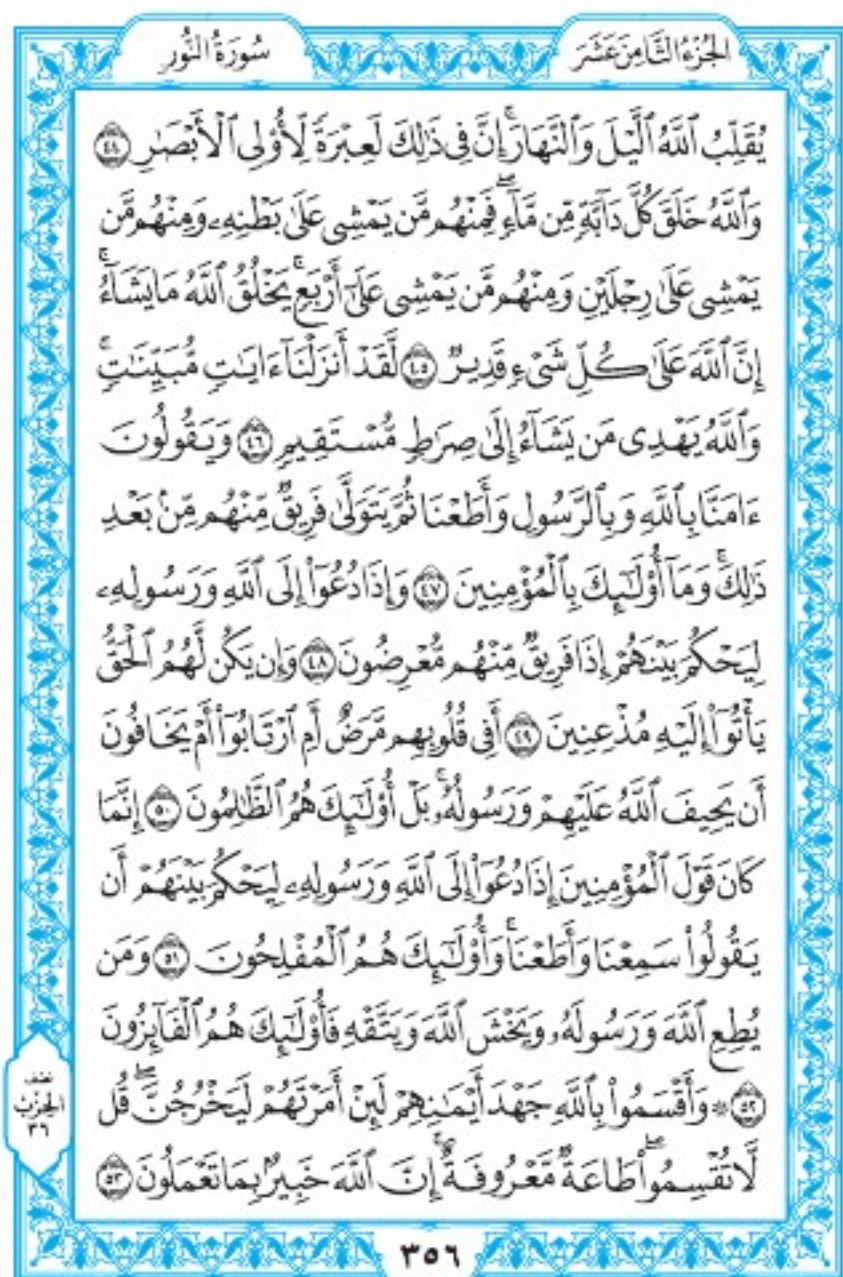 الجُزْءُ الثَّامِنَ عَشَرَ
سُورَةُ النُّورِ
يُقَلِّبُ ٱللَّهُ ٱلَّيْلَ وَٱلنَّهَارَۚ إِنَّ فِى ذَٰلِكَ لَعِبْرَةً لِّأُو۟لِى ٱلْأَبْصَٰرِ ٤٤
وَٱللَّهُ خَلَقَ كُلَّ دَآبَّةٍ مِّن مَّآءٍۖ فَمِنْهُم مَّن يَمْشِى عَلَىٰ بَطْنِهِۦ وَمِنْهُم مَّن
يَمْشِى عَلَىٰ رِجْلَيْنِ وَمِنْهُم مَّن يَمْشِى عَلَىٰٓ أَرْبَعٍۚ يَخْلُقُ ٱللَّهُ مَا يَشَآءُۚ
إِنَّ ٱللَّهَ عَلَىٰ كُلِّ شَىْءٍ قَدِيرٌ ٤٥ لَّقَدْ أَنزَلْنَآ ءَايَٰتٍ مُّبَيِّنَٰتٍۚ
وَٱللَّهُ يَهْدِى مَن يَشَآءُ إِلَىٰ صِرَٰطٍ مُّسْتَقِيمٍ ٤٦ وَيَقُولُونَ
ءَامَنَّا بِٱللَّهِ وَبِٱلرَّسُولِ وَأَطَعْنَا ثُمَّ يَتَوَلَّىٰ فَرِيقٌ مِّنْهُم مِّنۢ بَعْدِ
ذَٰلِكَۚ وَمَآ أُو۟لَٰٓئِكَ بِٱلْمُؤْمِنِينَ ٤٧ وَإِذَا دُعُوٓا۟ إِلَى ٱللَّهِ وَرَسُولِهِۦ
لِيَحْكُمَ بَيْنَهُمْ إِذَا فَرِيقٌ مِّنْهُم مُّعْرِضُونَ ٤٨ وَإِن يَكُن لَّهُمُ ٱلْحَقُّ
يَأْتُوٓا۟ إِلَيْهِ مُذْعِنِينَ ٤٩ أَفِى قُلُوبِهِم مَّرَضٌ أَمِ ٱرْتَابُوٓا۟ أَمْ يَخَافُونَ
أَن يَحِيفَ ٱللَّهُ عَلَيْهِمْ وَرَسُولُهُۥۚ بَلْ أُو۟لَٰٓئِكَ هُمُ ٱلظَّٰلِمُونَ ٥٠ إِنَّمَا
كَانَ قَوْلَ ٱلْمُؤْمِنِينَ إِذَا دُعُوٓا۟ إِلَى ٱللَّهِ وَرَسُولِهِۦ لِيَحْكُمَ بَيْنَهُمْ أَن
يَقُولُوا۟ سَمِعْنَا وَأَطَعْنَاۚ وَأُو۟لَٰٓئِكَ هُمُ ٱلْمُفْلِحُونَ ٥١ وَمَن
يُطِعِ ٱللَّهَ وَرَسُولَهُۥ وَيَخْشَ ٱللَّهَ وَيَتَّقْهِ فَأُو۟لَٰٓئِكَ هُمُ ٱلْفَآئِزُونَ
٥٢ ۞ وَأَقْسَمُوا۟ بِٱللَّهِ جَهْدَ أَيْمَٰنِهِمْ لَئِنْ أَمَرْتَهُمْ لَيَخْرُجُنَّۖ قُل
لَّا تُقْسِمُوا۟ۖ طَاعَةٌ مَّعْرُوفَةٌۚ إِنَّ ٱللَّهَ خَبِيرٌۢ بِمَا تَعْمَلُونَ ٥٣
نصف
الحزب
٣٦
٣٥٦